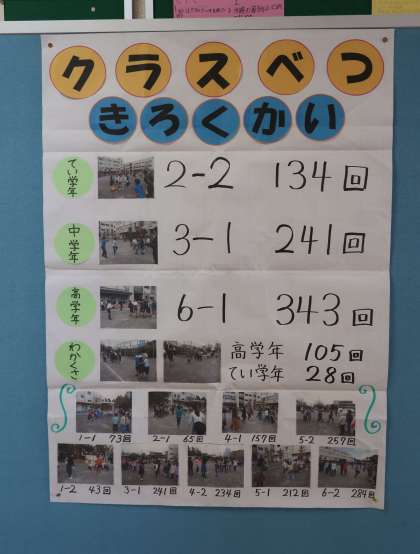 クラスべつ
きろくかい
てい学年 2-2 134回
中学年 3-1 241回
高学年 6-1 343回
わかくさ 高学年 105回
てい学年 28回
1-1 73回 2-1 65回 4-1 157回 5-2 257回
1-2 43回 3-1 241回 4-2 234回 5-1 212回 6-2 284回